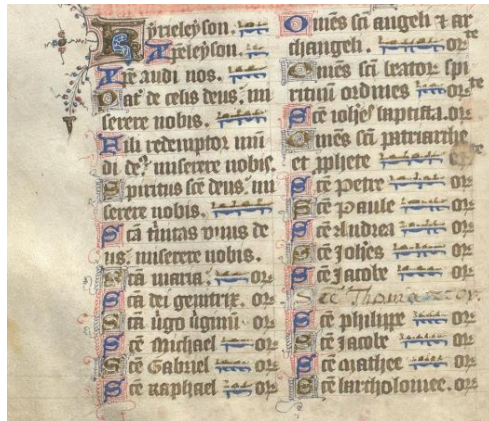 Kyrieleyson.
Xpeleyson.
Xpe audi nos.
Pat' de celis deus. mi
serere nobis.
Fili redemptor mū
di de'. miserere nobis.
Spiritus scē deus. mi
serere nobis.
Scā t'nitas vnus de
us. miserere nobis.
Scā maria. or
Scā dei genitrix. or
Scā v'go v'ginū. or
Scē Michael or
Scē Gabriel or
Scē Raphael or
Omēs scī angeli et ar
changeli. orte
Omēs scī beator spi
rituū ordines orte
Scē iohēs baptista. or
Omēs scī patriarche
et pphete orte
Scē Petre or
Scē Paule or
Scē Andrea or
Scē Johēs or
Scē Jacobe or
Scē Thoma or.
Scē philippe or
Scē Jacobe or
Scē Mathee or
Scē bartholomee. or